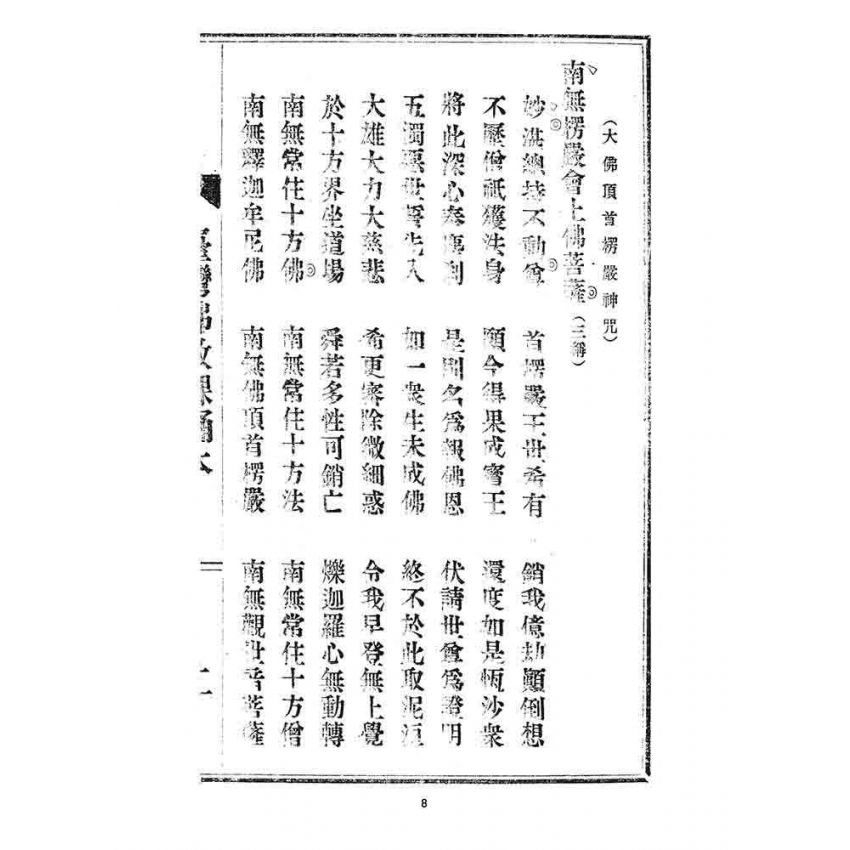 (大佛頂首楞嚴神咒)
南無楞嚴會上佛菩薩(三稱)
妙湛總持不動尊 首楞嚴王世希有 銷我億劫顛倒想
不歷僧祇獲法身 願今得果成寶王 還度如是恆沙衆
將此深心奉塵刹 是則名爲報佛恩 伏請世尊爲證明
五濁惡世誓先入 如一衆生未成佛 終不於此取泥洹
大雄大力大慈悲 希更審除微細惑 令我早登無上覺
於十方界坐道場 舜若多性可銷亡 爍迦羅心無動轉
南無常住十方佛 南無常住十方法 南無常住十方僧
南無釋迦牟尼佛 南無佛頂首楞嚴 南無觀世音菩薩
臺灣佛教課誦本
8